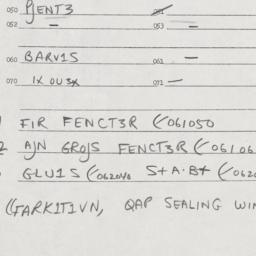 050 PJENT3
052 – 053 –
060 BARV1S 061 –
070 1X OU3X 071 –
FIR FENCT3R (/061050
2 AJN GROJS FENCT3R (/06106
GLU1S (/062040 S+A·B+ (/0620
((TARKIT1VN, QAP SEALING WIN